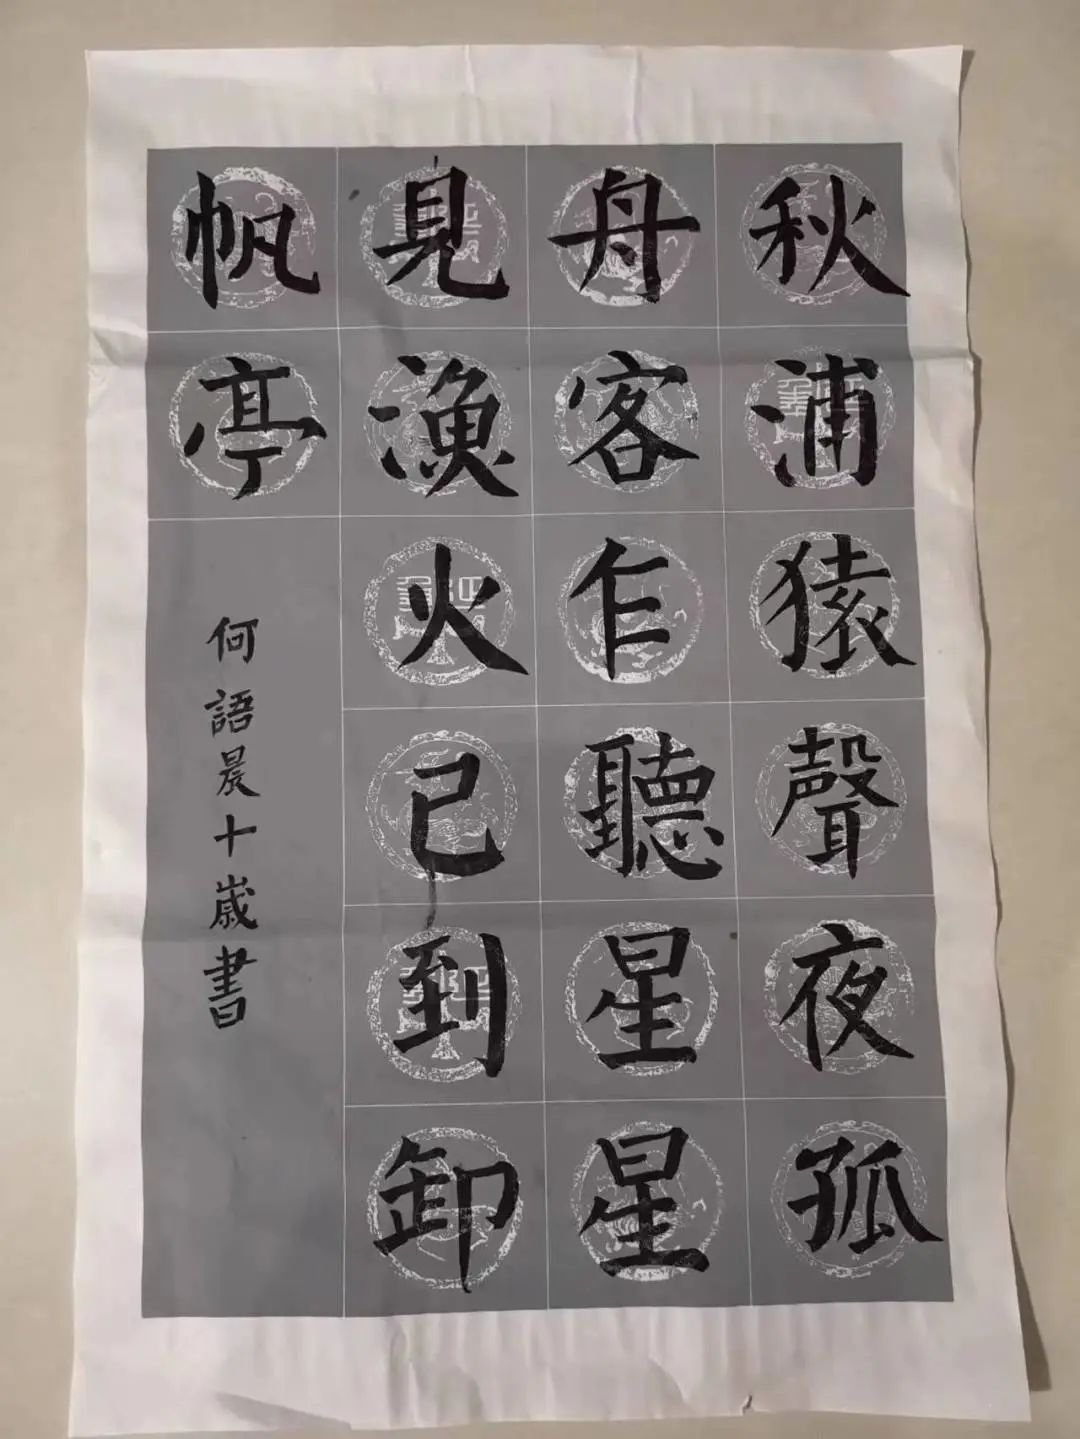 秋浦猿聲夜孤
舟客乍聽星星
見漁火已到卸
帆亭
何語晨十歲書